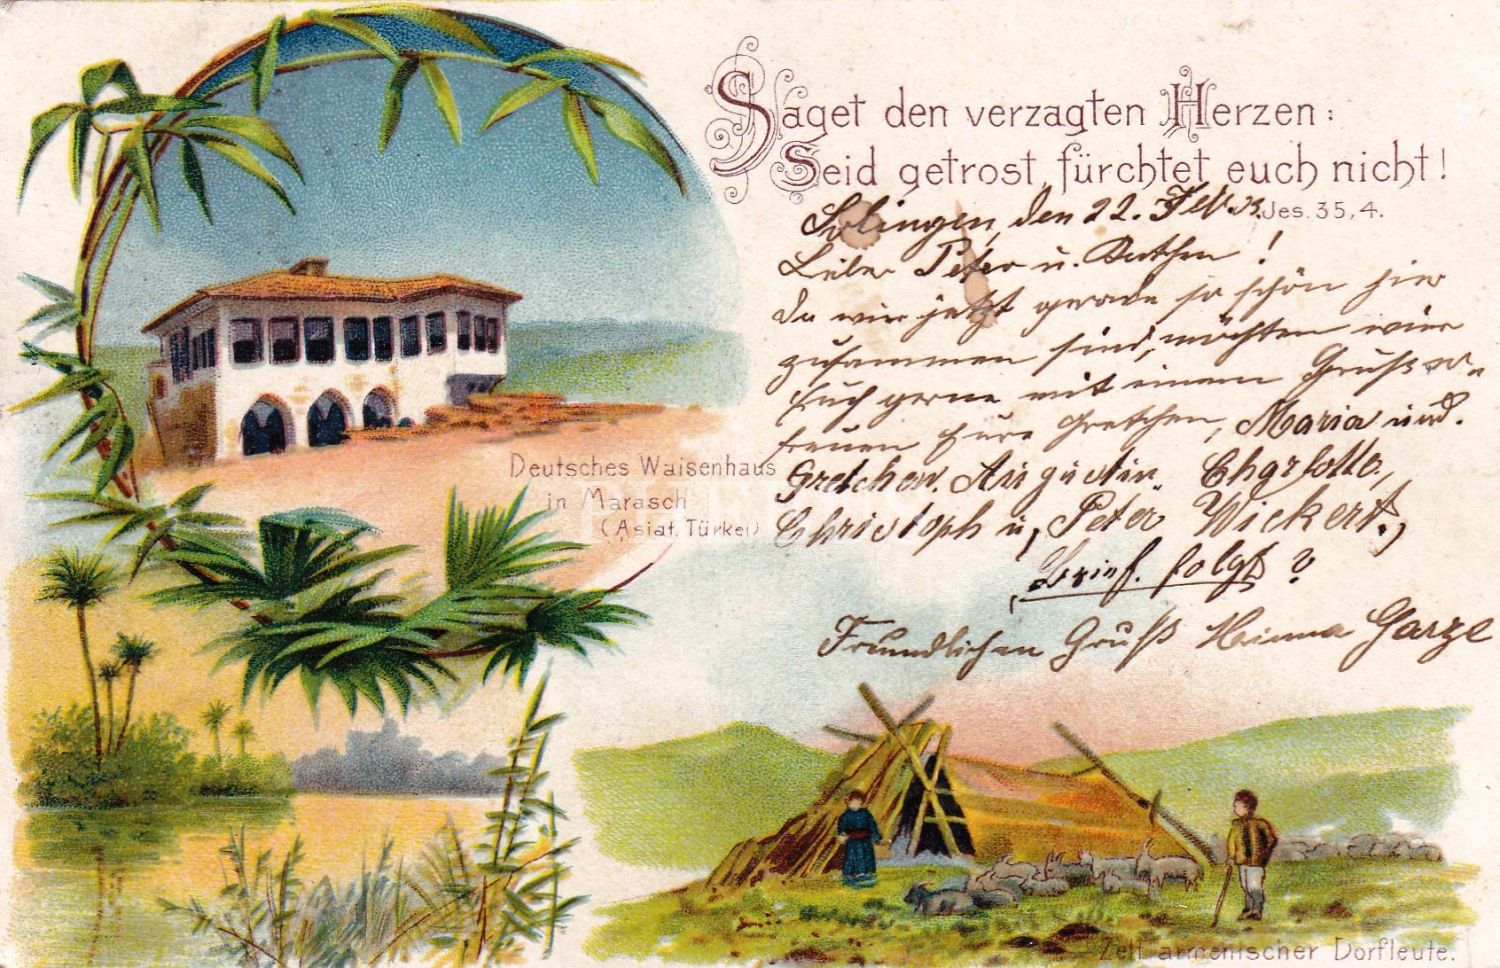 Saget den verzagten Herzen:
Seid getrost, fürchtet euch nicht!
Jes. 35, 4.
Solingen, den 22. Febr.
Lieber Peter u.
Da wir jetzt gerade so schön hier
zusammen sind, möchten wir
Euch gerne mit einem Gruß
freuen Eure Gretchen, Maria und.
Gretchen. Augustin. Charlotte,
Christoph u, Peter Wickert.,
Brief. folgt ?
Freundlichen Gruß
Deutsches Waisenhaus
in Marasch
(Asiat. Türkei)
Zelt armenischer Dorfleute.